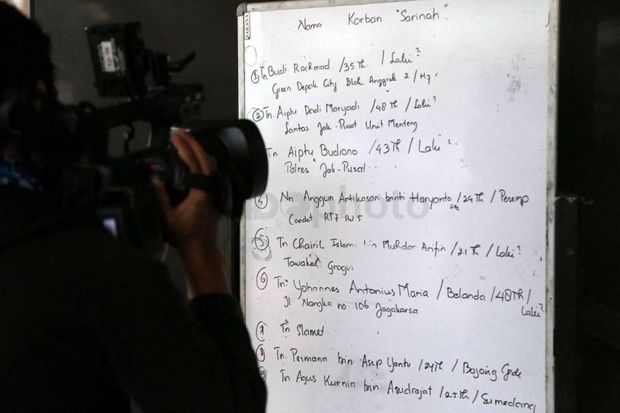 Nama Korban "Sarinah"
① Tn Budi Rachmad / 35 Th / Laki²
Green Depok City Blok Anggrek 2 / H9
② Tn. Aiptu Dedi Maryadi / 48 Th / Laki²
Lantas Jak-Pusat Unit Menteng
Tn Aiptu Budiono / 43 Th / Laki²
Polres Jak-Pusat
④ Nn Anggun Antikasari binti Haryanto / 24 Th / Peremp
Condet RT7 RW 5
⑤ Tn Chairil Islami bin Muhdar Arifin / 21 Th / Laki²
Tawakal Grogol
⑥ Tn. Yohannes Antonius Maria / Belanda / 48 Th / Laki²
Jl Nangka no 106 Jagakarsa
⑦ Tn Slamet
⑧ Tn. Permana bin Asep Yanto / 24 Th / Bojong Gede
Tn Agus Kurnia bin Asudrajat / 25 Th / Sumedang